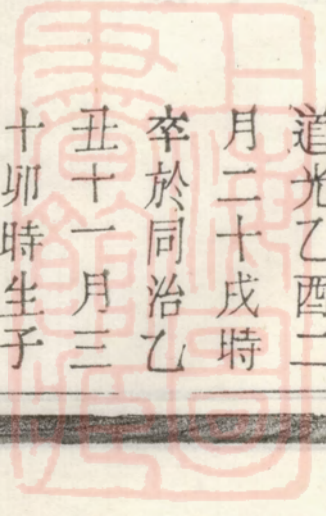 道光乙酉二
月二十戌時
卒於同治乙
丑十一月三
十卯時生子